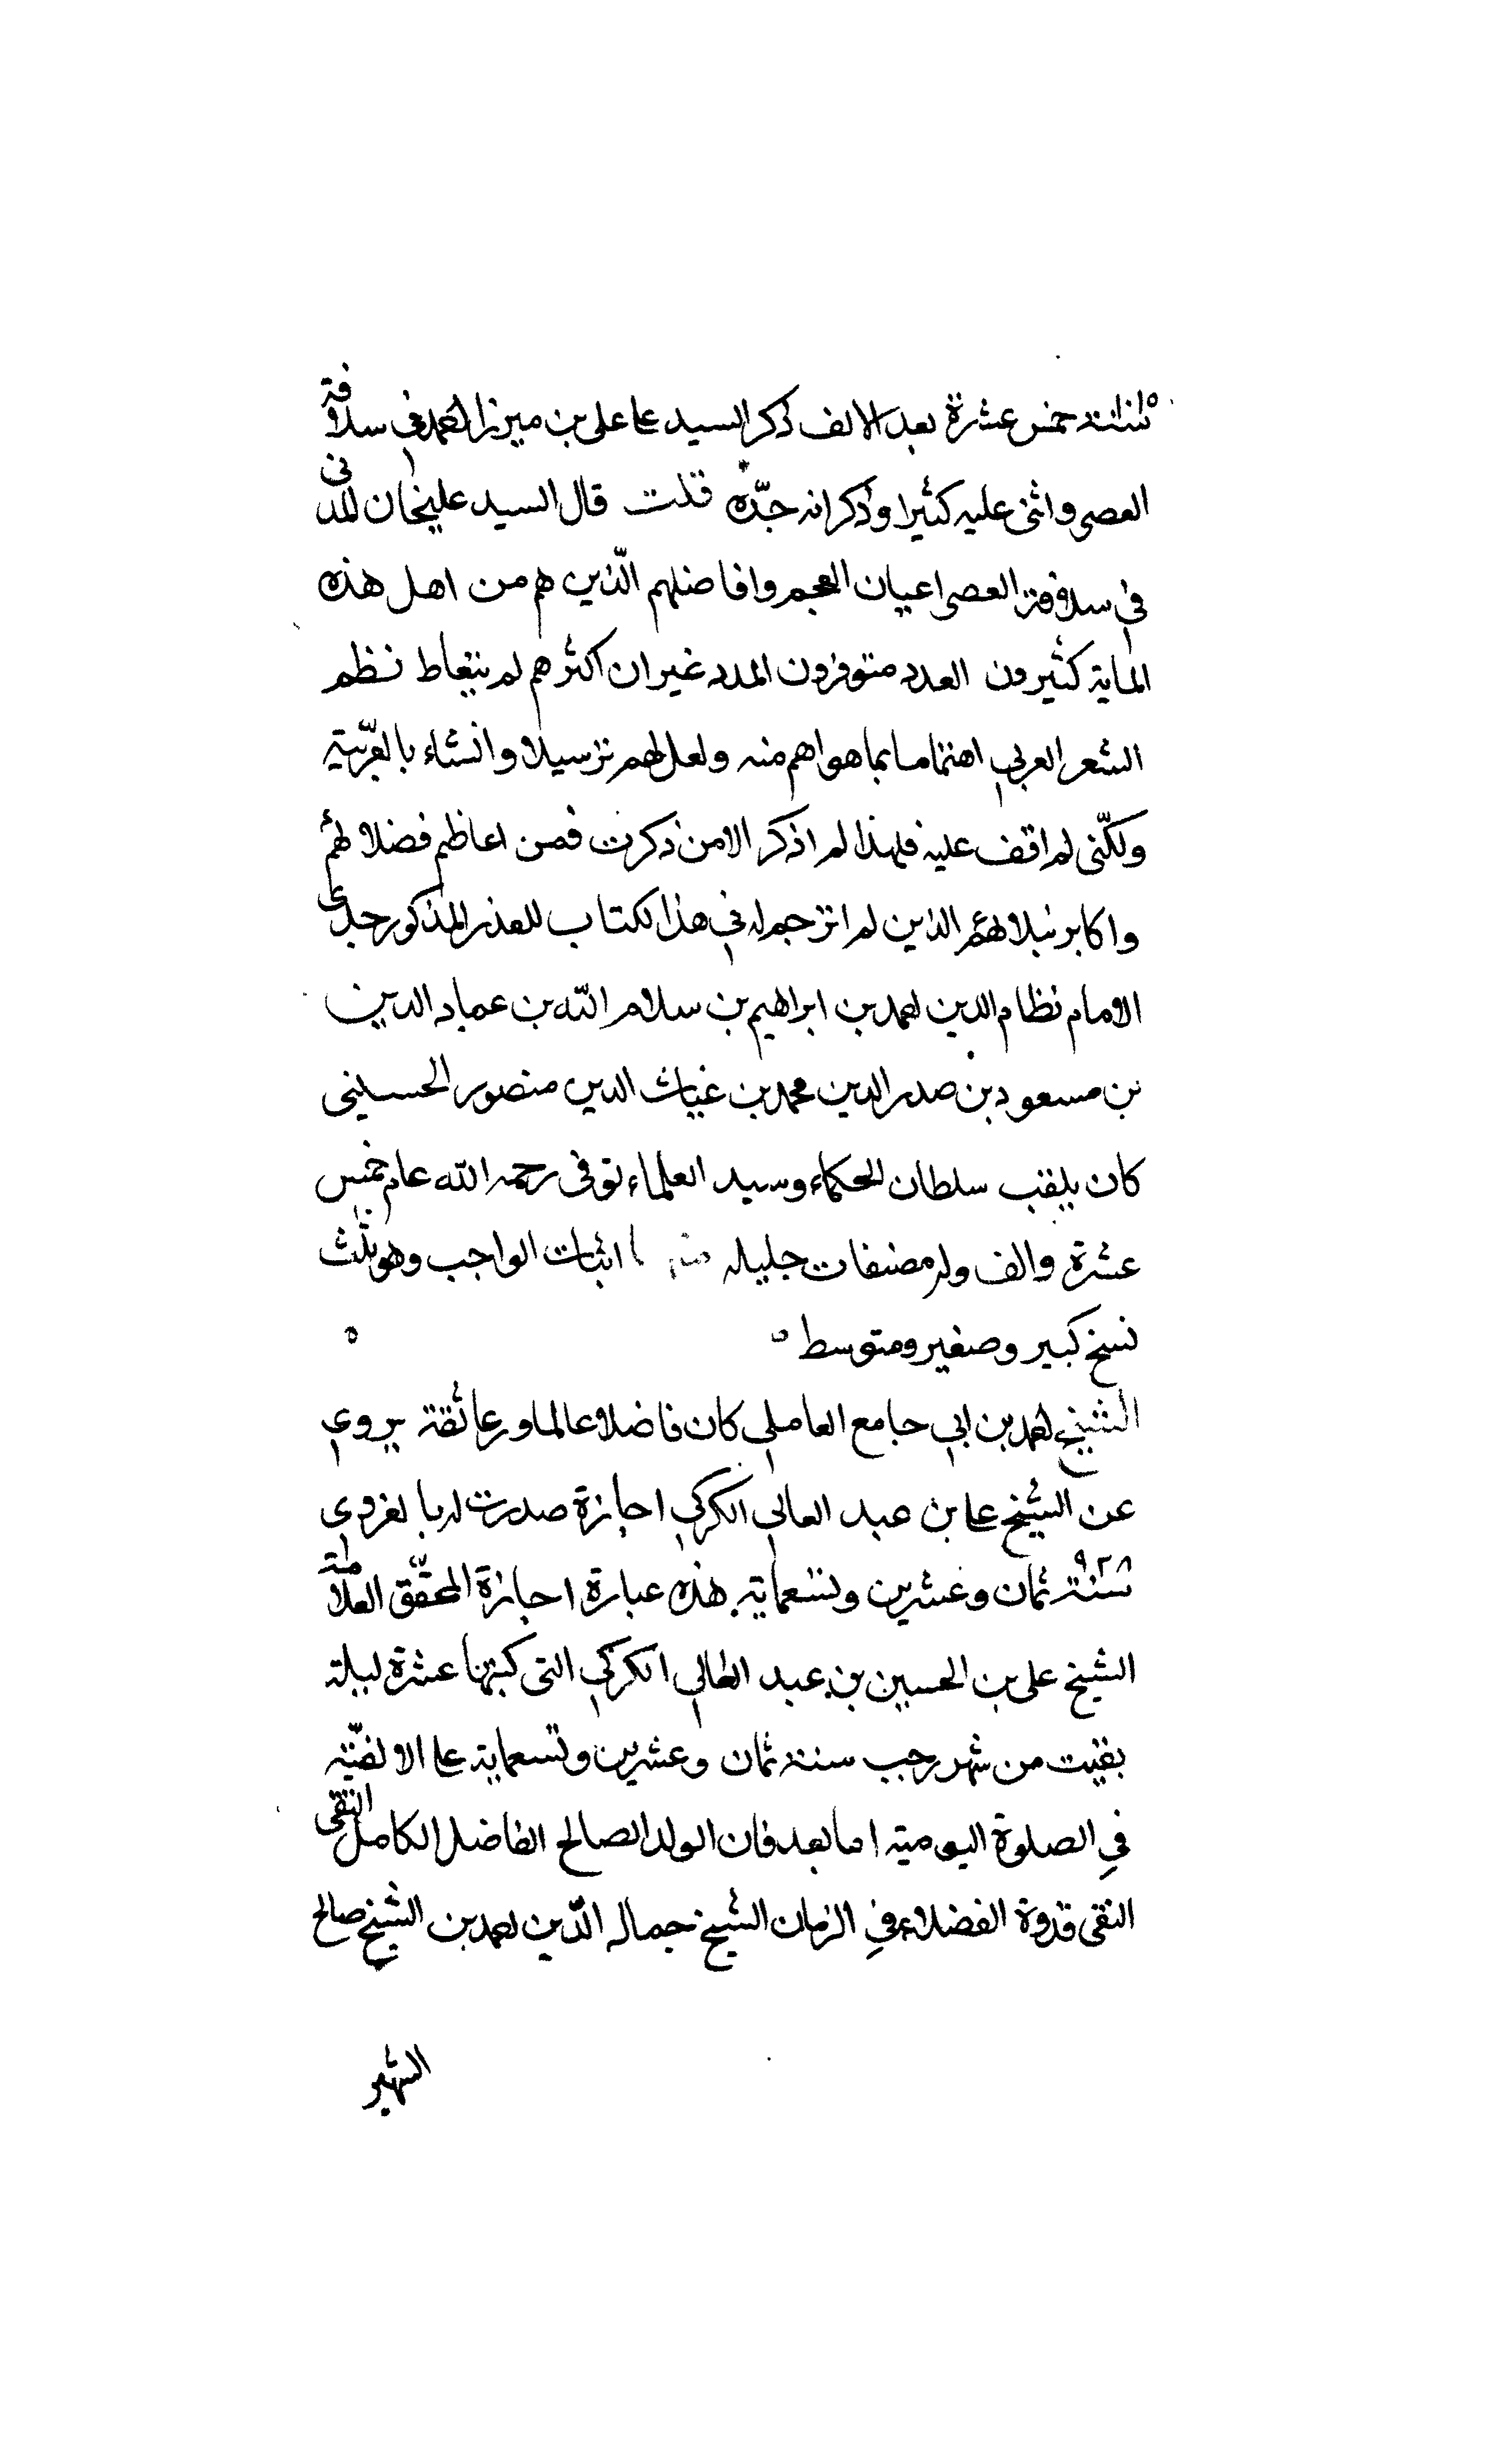 سنة ١٠١٥ خمس عشرة بعد الالف ذكر السيد على بن ميرزا احمد في سلافة
العصر واثنى عليه كثيرا وذكر انه جدّه قلت قال السيد عليخان المدني
في سلافة العصر اعيان العجم وافاضلهم الّذين هم من اهل هذه
الماية كثيرون العدد متوفرون المدد غير ان اكثرهم لم يتعاط نظم
الشعر العربي اهتماما بما هو اهم منه ولعل لهم ترسيلا وانشاء بالعربّية
ولكنّى لم اقف عليه فلهذا لم اذكر الا من ذكرت فمن اعاظم فضلائهم
واكابر نبلائهم الذين لم اترجم له في هذا الكتاب للعذر المذكور جدى
الامام نظام الدين احمد بن ابراهيم بن سلام الله بن عماد الدين
بن مسعود بن صدر الدين محمد بن غياث الدين منصور الحسينى
كان يلقب سلطان الحكماء وسيد العلماء توفى رحمه الله عام خمس
عشرة والف وله مصنفات جليله منها اثبات الواجب وهو ثلث
نسخ كبير وصغير ومتوسط ه ه
الشيخ احمد بن ابي جامع العاملي كان فاضلا عالما ورعا ثقة يروى
عن الشيخ على بن عبد العالي الكركي اجازة صدرت له بالغروى
سنة ٩٢٨ ثمان وعشرين وتسعماية هذه عبارة اجازة المحقّق العلامة
الشيخ على بن الحسين بن عبد العالي الكركي التى كتبها عشرة ليلة
بقيت من شهر رجب سنة ثمان وعشرين وتسعماية على الالفيّة
في الصلوة اليومية اما بعد فان الولد الصالح الفاضل الكامل التقى
النقى قدوة الفضلاء في الزمان الشيخ جمال الدّين احمد بن الشيخ صالح
الشهير